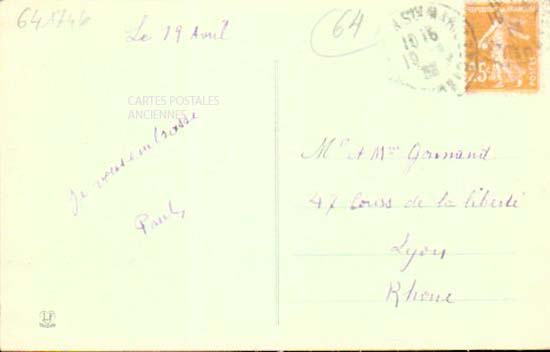 641746
Le 19 Avril
64
CARTES POSTALES
ANCIENNES
Je vous embrasse
Paul
Mr et Mme Gounand
47 Cours de la liberté
Lyon
Rhone